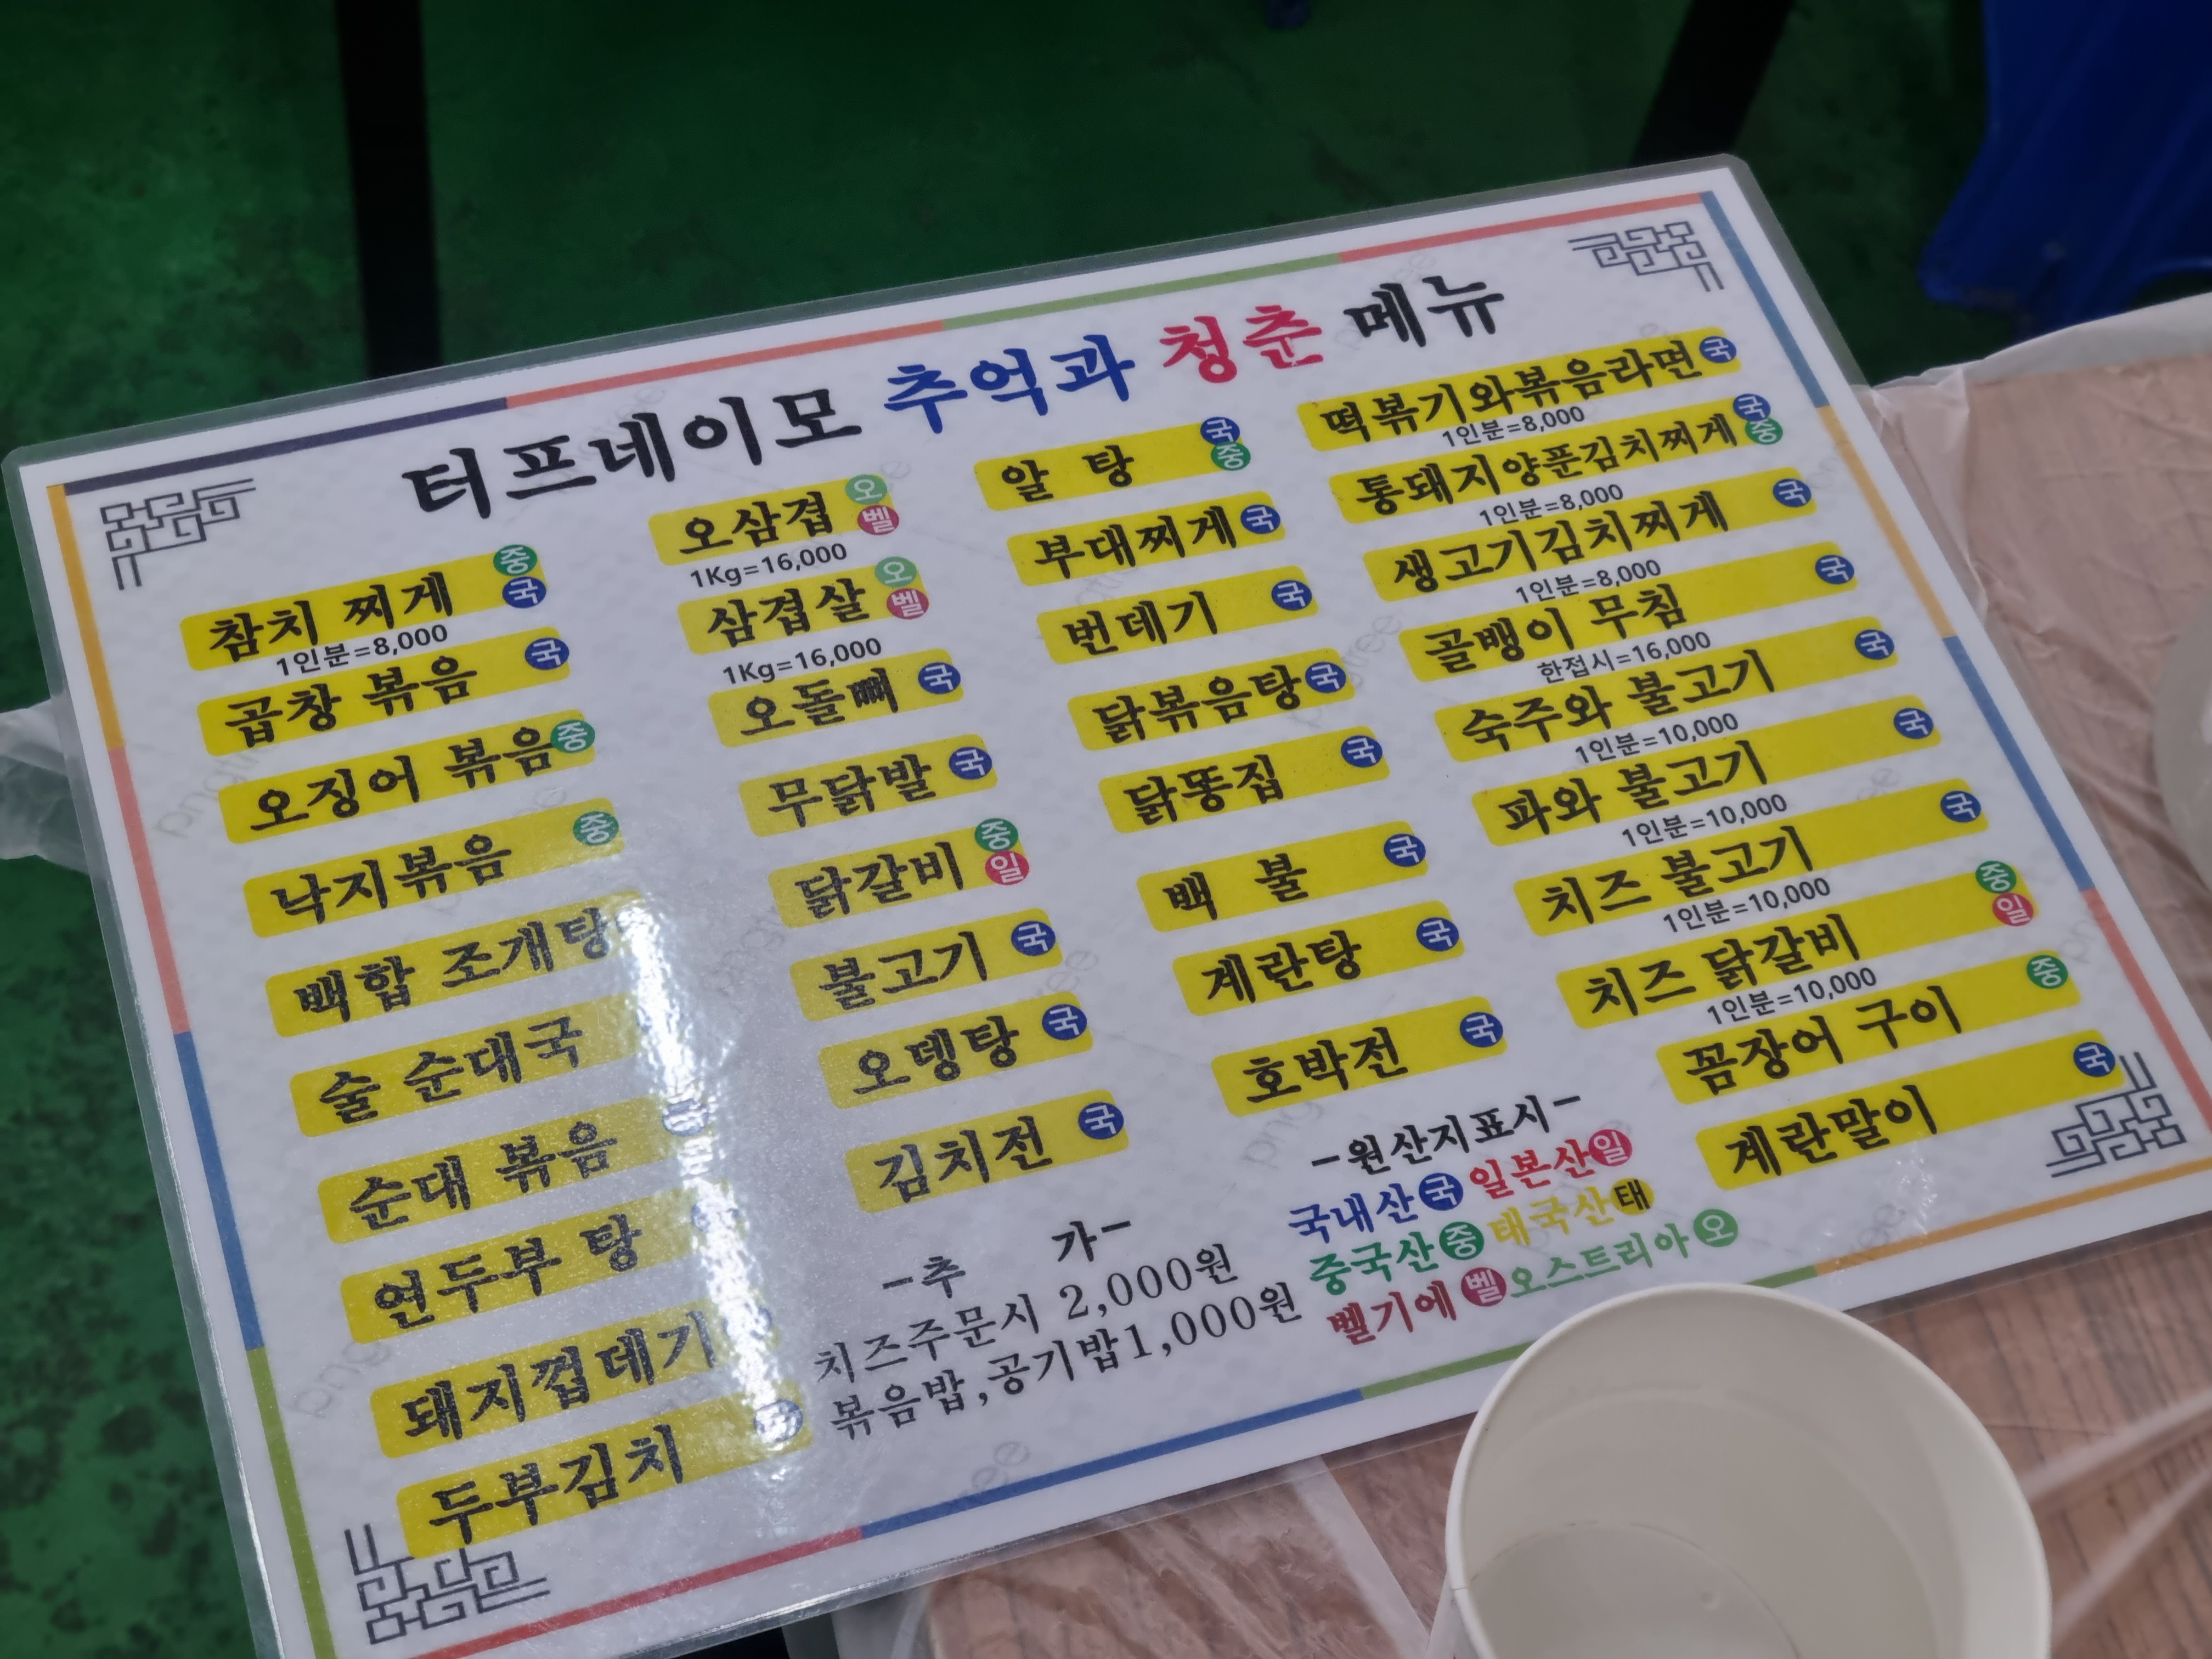 터프네이모 추억과 청춘 메뉴
참치 찌게 중 국
1인분=8,000
곱창 볶음 국
오징어 볶음 중
낙지볶음 중
백합 조개탕
술 순대국
순대 볶음
연두부 탕
돼지껍데기
두부김치
오삼겹 오 벨
1Kg=16,000
삼겹살 오 벨
1Kg=16,000
오돌뼈 국
무닭발 국
닭갈비 중 일
불고기 국
오뎅탕 국
김치전 국
알 탕 국 중
부대찌게 국
번데기 국
닭볶음탕 국
닭똥집 국
백 불 국
계란탕 국
호박전 국
떡볶기와볶음라면 국
1인분=8,000
통돼지양푼김치찌게 국 중
1인분=8,000
생고기김치찌게 국
1인분=8,000
골뱅이 무침 국
한접시=16,000
숙주와 불고기 국
1인분=10,000
파와 불고기 국
1인분=10,000
치즈 불고기 국
1인분=10,000
치즈 닭갈비 중 일
1인분=10,000
꼼장어 구이 중
계란말이 국
-추 가-
치즈주문시 2,000원
볶음밥,공기밥1,000원
-원산지표시-
국내산 국 일본산 일
중국산 중 태국산 태
벨기에 벨 오스트리아 오